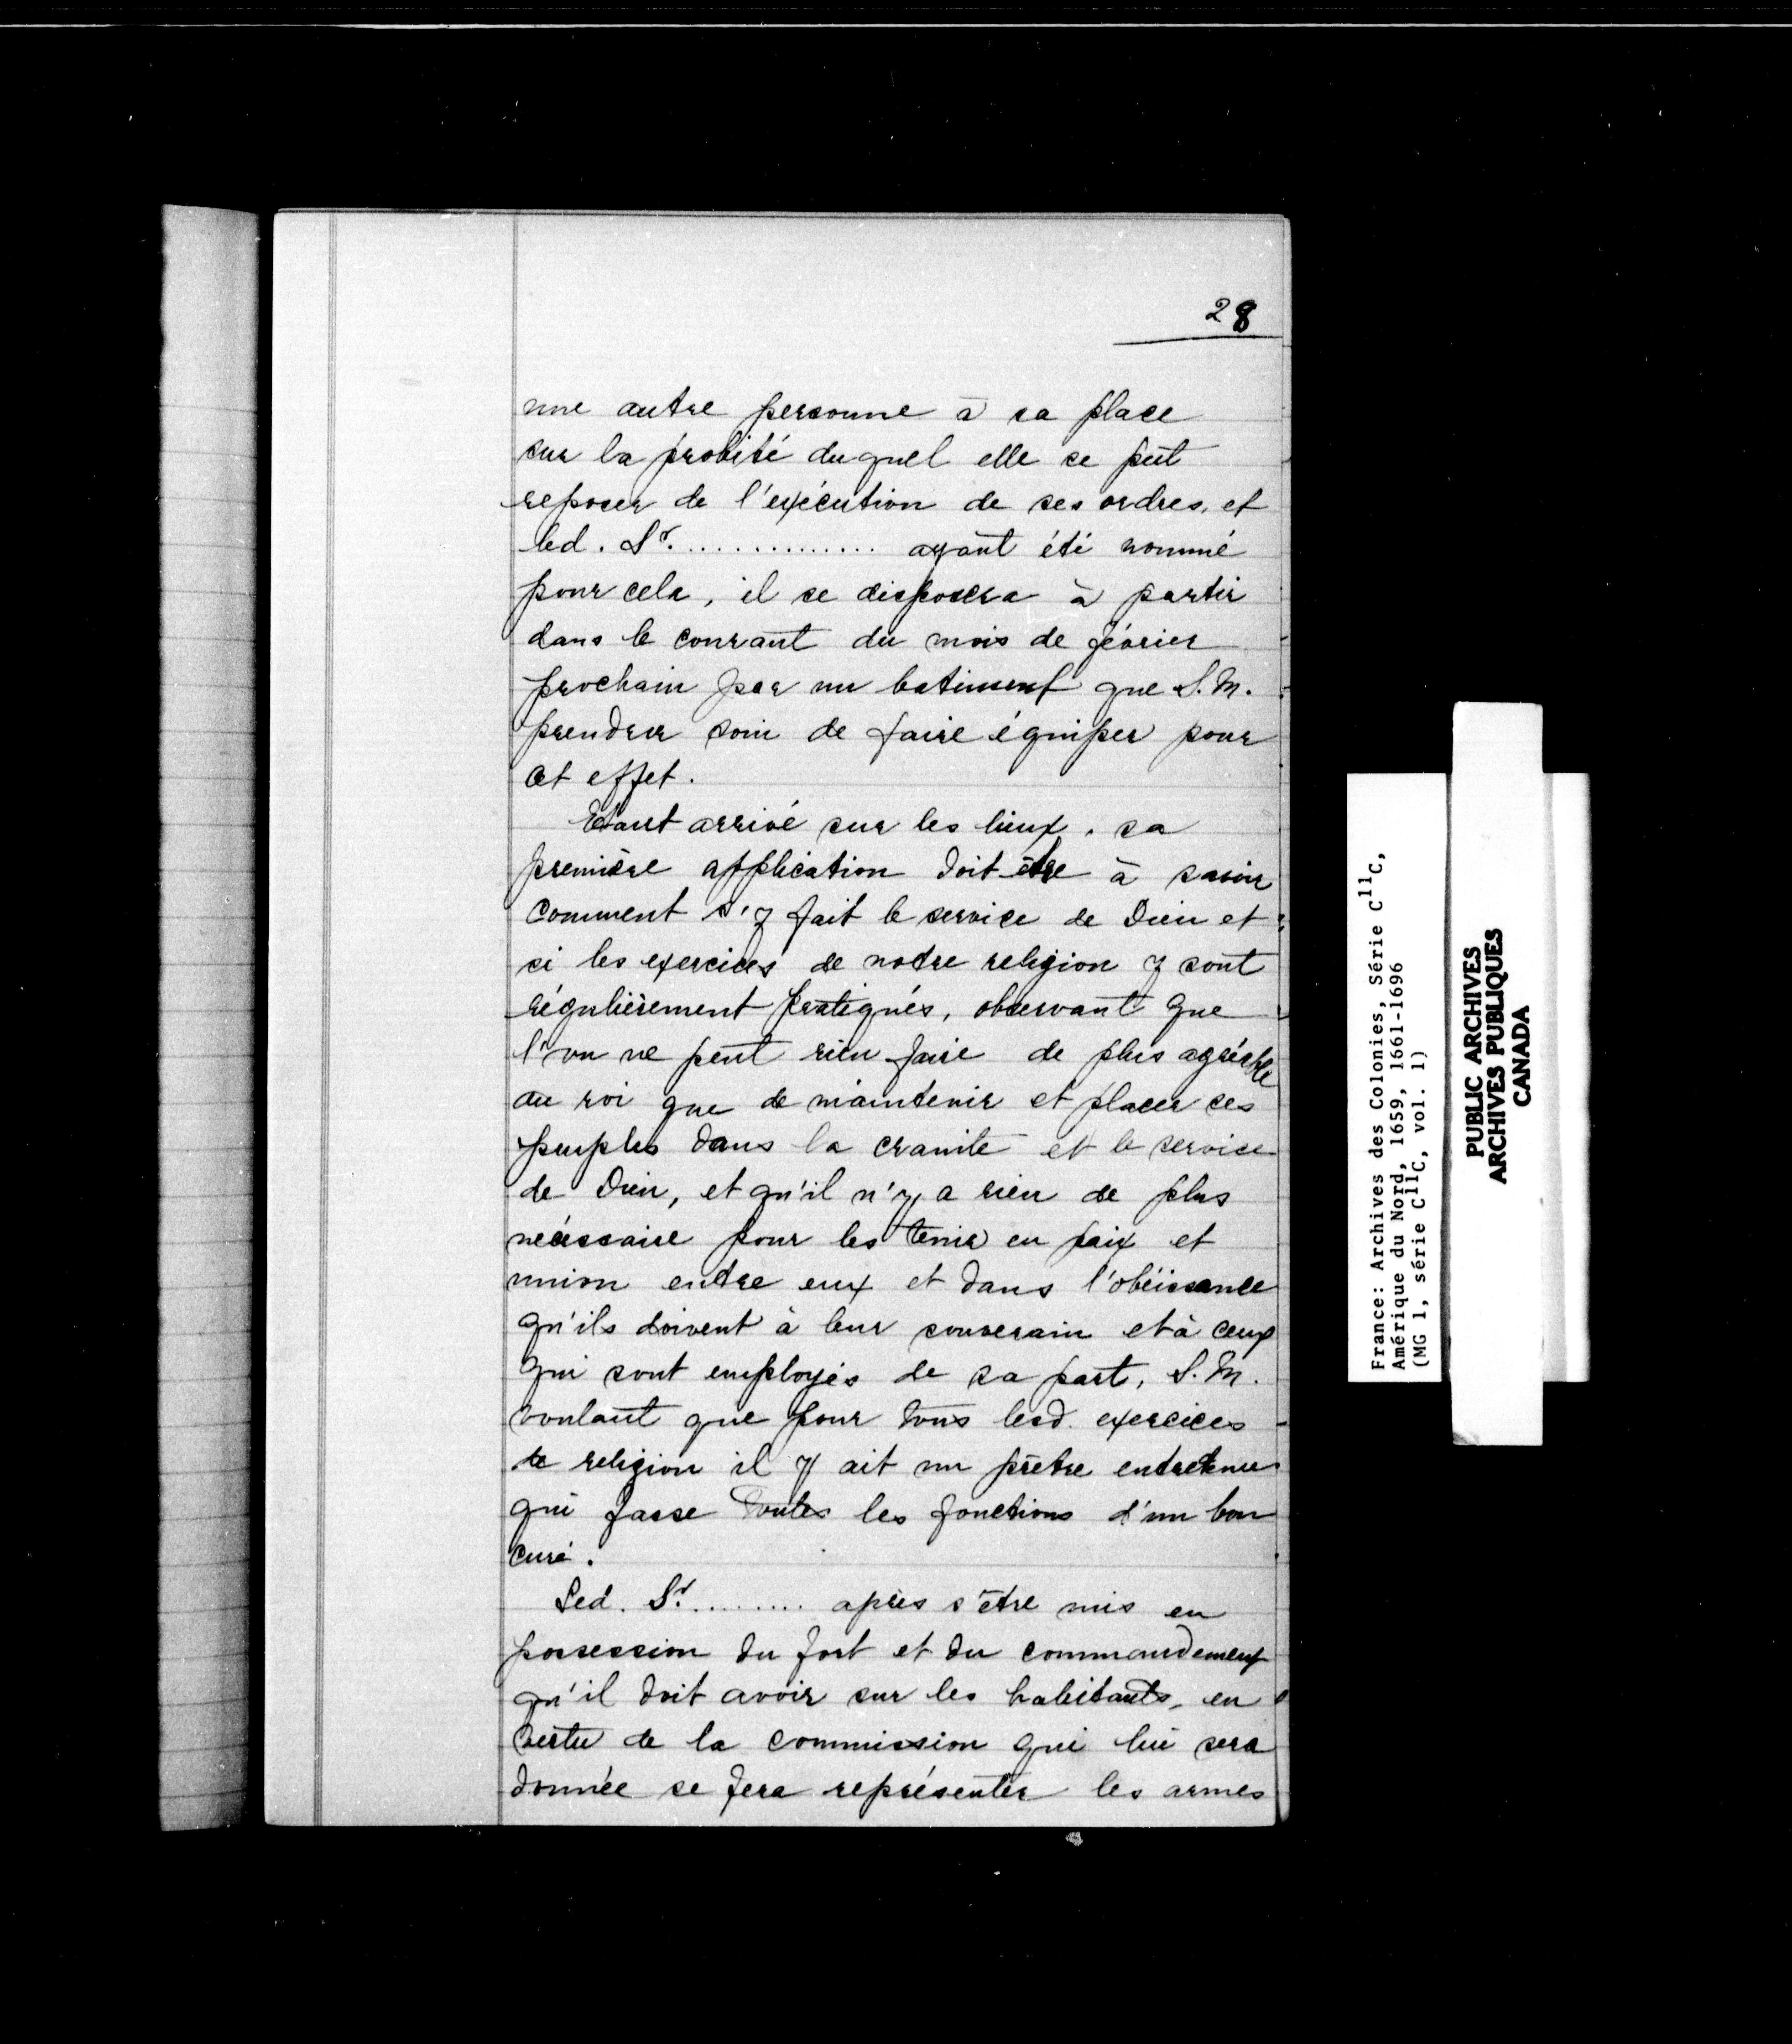 28
une autre personne à sa place
sur la probité duquel elle se peut
reposer de l'exécution de ses ordres, et
led. Sr. .............. ayant été nommé
pour cela, il se disposera à partir
dans le courant du mois de février
prochain par un batiment que S. M.
prendra soin de faire équiper pour
cet effet.
Etant arrivé sur les lieux, sa
première application doit être à savoir
comment s'y fait le service de Dieu et
si les exercices de notre religion y sont
régulièrement pratiqués, observant que
l'on ne peut rien faire de plus agréable
au roi que de maintenir et placer ces
peuples dans la crainte et le service
de Dieu, et qu'il n'y a rien de plus
nécessaire pour les tenir en paix et
union entre eux et dans l'obéissance
qu'ils doivent à leur souverain et à ceux
qui sont employés de sa part, S. M.
voulant que pour tous lesd. exercices
de religion il y ait un prêtre entretenu
qui fasse toutes les fonctions d'un bon
curé.
Led. Sr. ......... après s'être mis en
possession du fort et du commandement
qu'il doit avoir sur les habitants, en
vertu de la commission qui lui sera
donnée se fera représenter les armes
France: Archives des Colonies, Série C11C,
Amérique du Nord, 1659, 1661-1696
(MG 1, série C11C, vol. 1)
PUBLIC ARCHIVES
ARCHIVES PUBLIQUES
CANADA